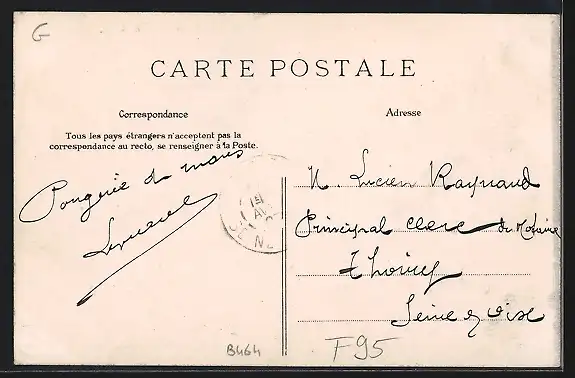 G
CARTE POSTALE
Correspondance
Adresse
Tous les pays étrangers n'acceptent pas la
correspondance au recto, se renseigner à la Poste.
M. Lucien Raynaud
Principal clerc de Notaire
Thoiry
Seine & Oise
B464
F95